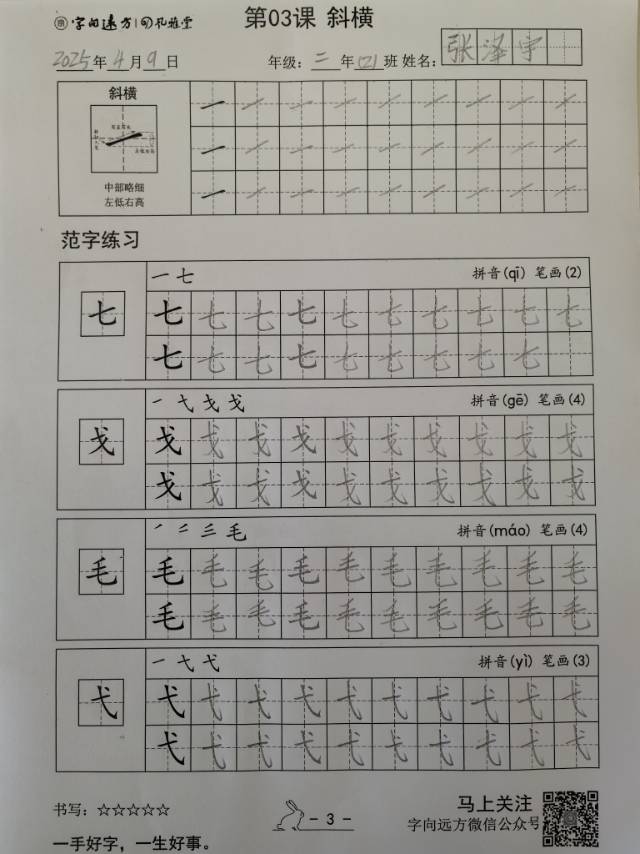 字向远方 孔雅堂
第03课 斜横
2025年4月9日 年级：三年四班 姓名：张泽宇
斜横
中部略细
左低右高
范字练习
一 七 拼音(qī) 笔画(2)
七 七 七 七 七 七 七 七 七 七 七
七 七 七 七 七 七 七 七 七
一 弋 戈 戈 拼音(gē) 笔画(4)
戈 戈 戈 戈 戈 戈 戈 戈 戈 戈 戈
戈 戈 戈 戈 戈 戈 戈 戈 戈 戈
拼音(máo) 笔画(4)
毛 毛 毛 毛 毛 毛 毛 毛 毛 毛 毛
毛 毛 毛 毛 毛 毛 毛 毛 毛 毛
一 弋 弋 拼音(yì) 笔画(3)
弋 弋 弋 弋 弋 弋 弋 弋 弋 弋 弋
弋 弋 弋 弋 弋 弋 弋 弋 弋 弋
书写：☆☆☆☆☆
- 3 -
马上关注
字向远方微信公众号
一手好字，一生好事。